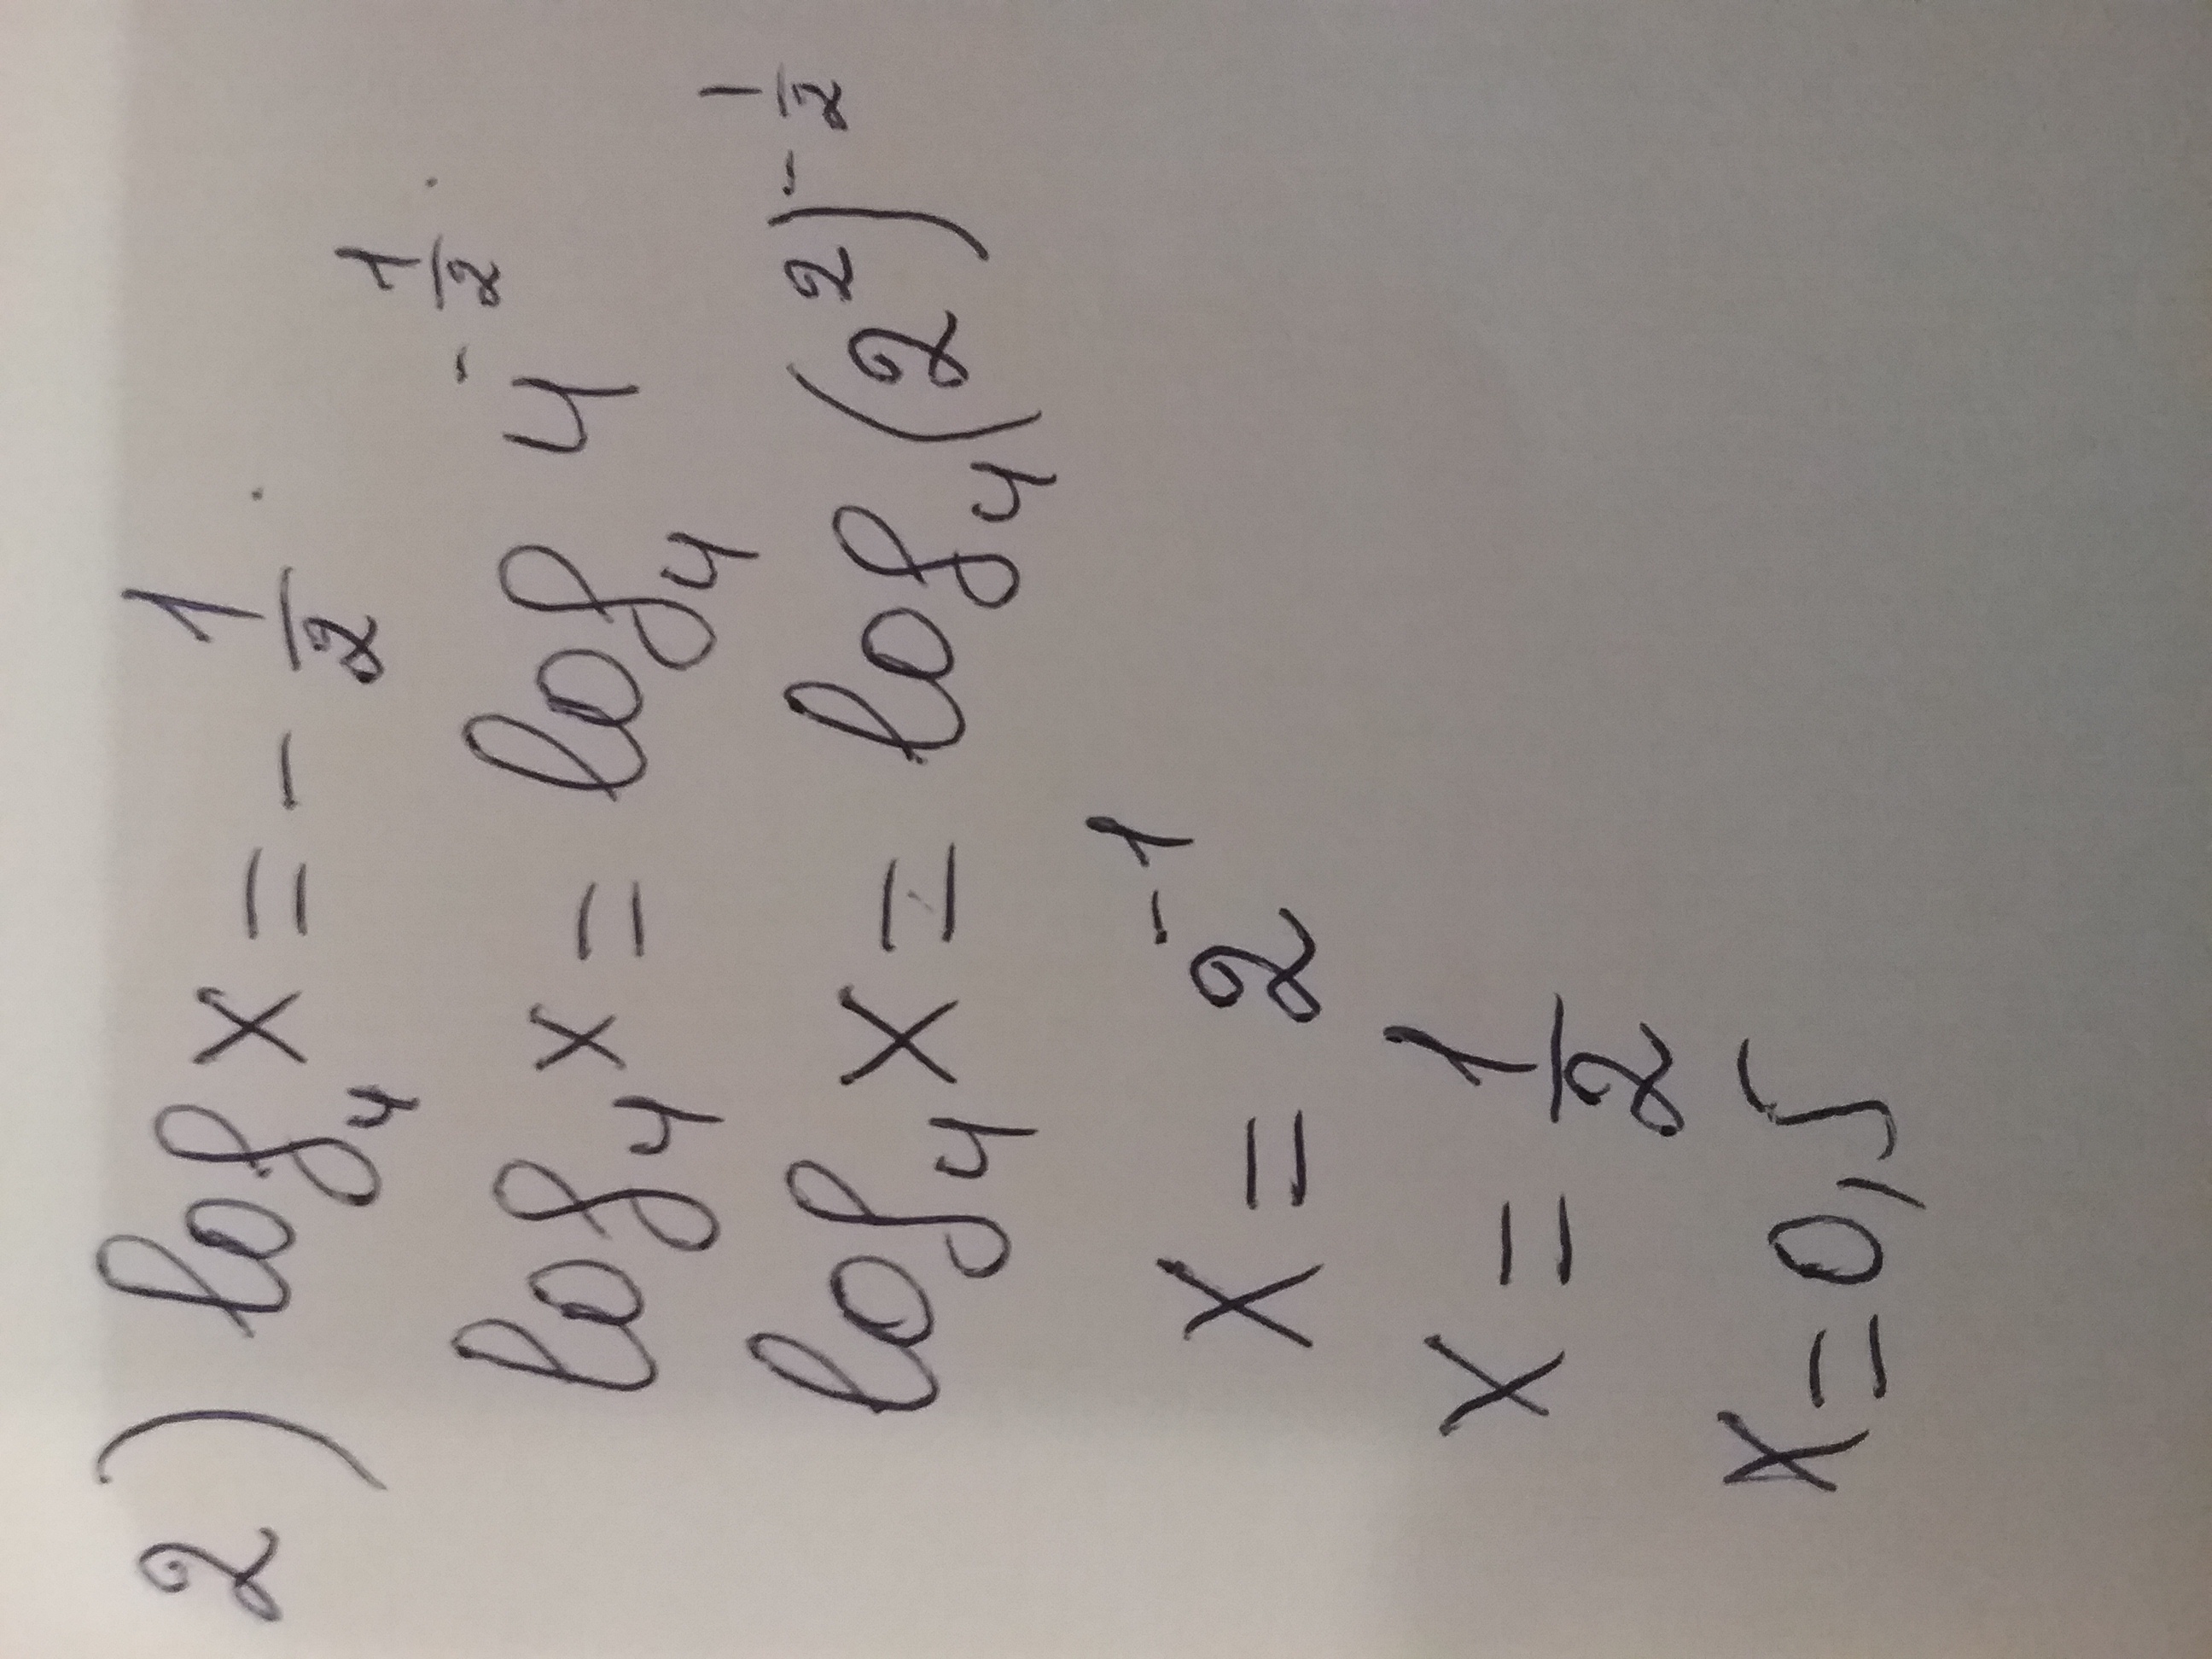 2) log₄ x = - 1/2
log₄ x = log₄ 4^(-1/2)
log₄ x = log₄ (2²)^(-1/2)
x = 2⁻¹
x = 1/2
x = 0,5